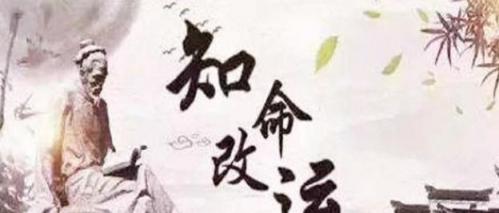 知命改运